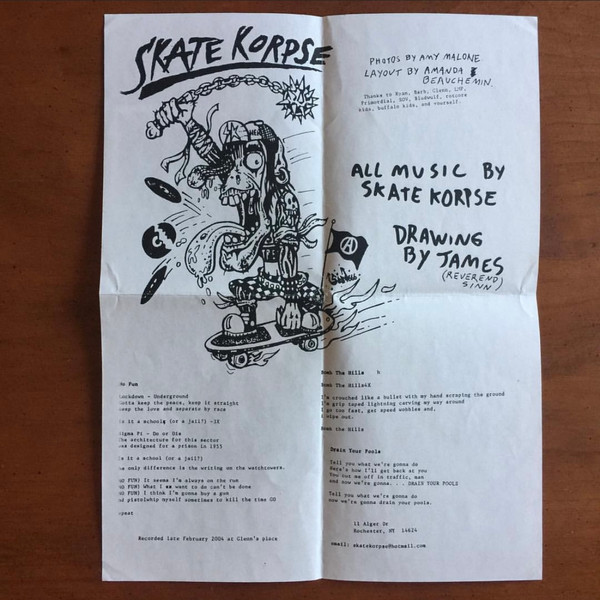 SKATE KORPSE
PHOTOS BY AMY MALONE
LAYOUT BY AMANDA
BEAUCHEMIN.
Thanks to Ryan, Mark, Glenn, LHP,
Primordial, SOV, Bludwulf, concord
kids, buffalo kids, and yourself.
ALL MUSIC BY
SKATE KORPSE
DRAWING
BY JAMES
(REVEREND
SINN)
A
No Fun
Lockdown - Underground
Gotta keep the peace, keep it straight
Keep the love and separate by race
Is it a school (or a jail?) -1X
Sigma Pi - Do or Die
The architecture for this sector
was designed for a prison in 1955
Is it a school (or a jail?)
he only difference is the writing on the watchtowers.
NO FUN) It seems I'm always on the run
NO FUN) What I want to do can't be done
NO FUN) I think I'm gonna buy a gun
nd pistolwhip myself sometimes to kill the time GO
epeat
Recorded late February 2004 at Glenn's place
Bomb The Hills h
Bomb The Hills4X
I'm crouched like a bullet with my hand scraping the ground
I'm grip taped lightning carving my way around
I go too fast, get speed wobbles and.
I wipe out.
Bomb the Hills
Drain Your Pools
Tell you what we're gonna do
Here's how I'll get back at you
You cut me off in traffic, man
and now we're gonna. . . DRAIN YOUR POOLS
Tell you what we're gonna do
now we're gonna drain your pools.
11 Alger Dr
Rochester, NY 14624
email: skatekorpse@hotmail.com